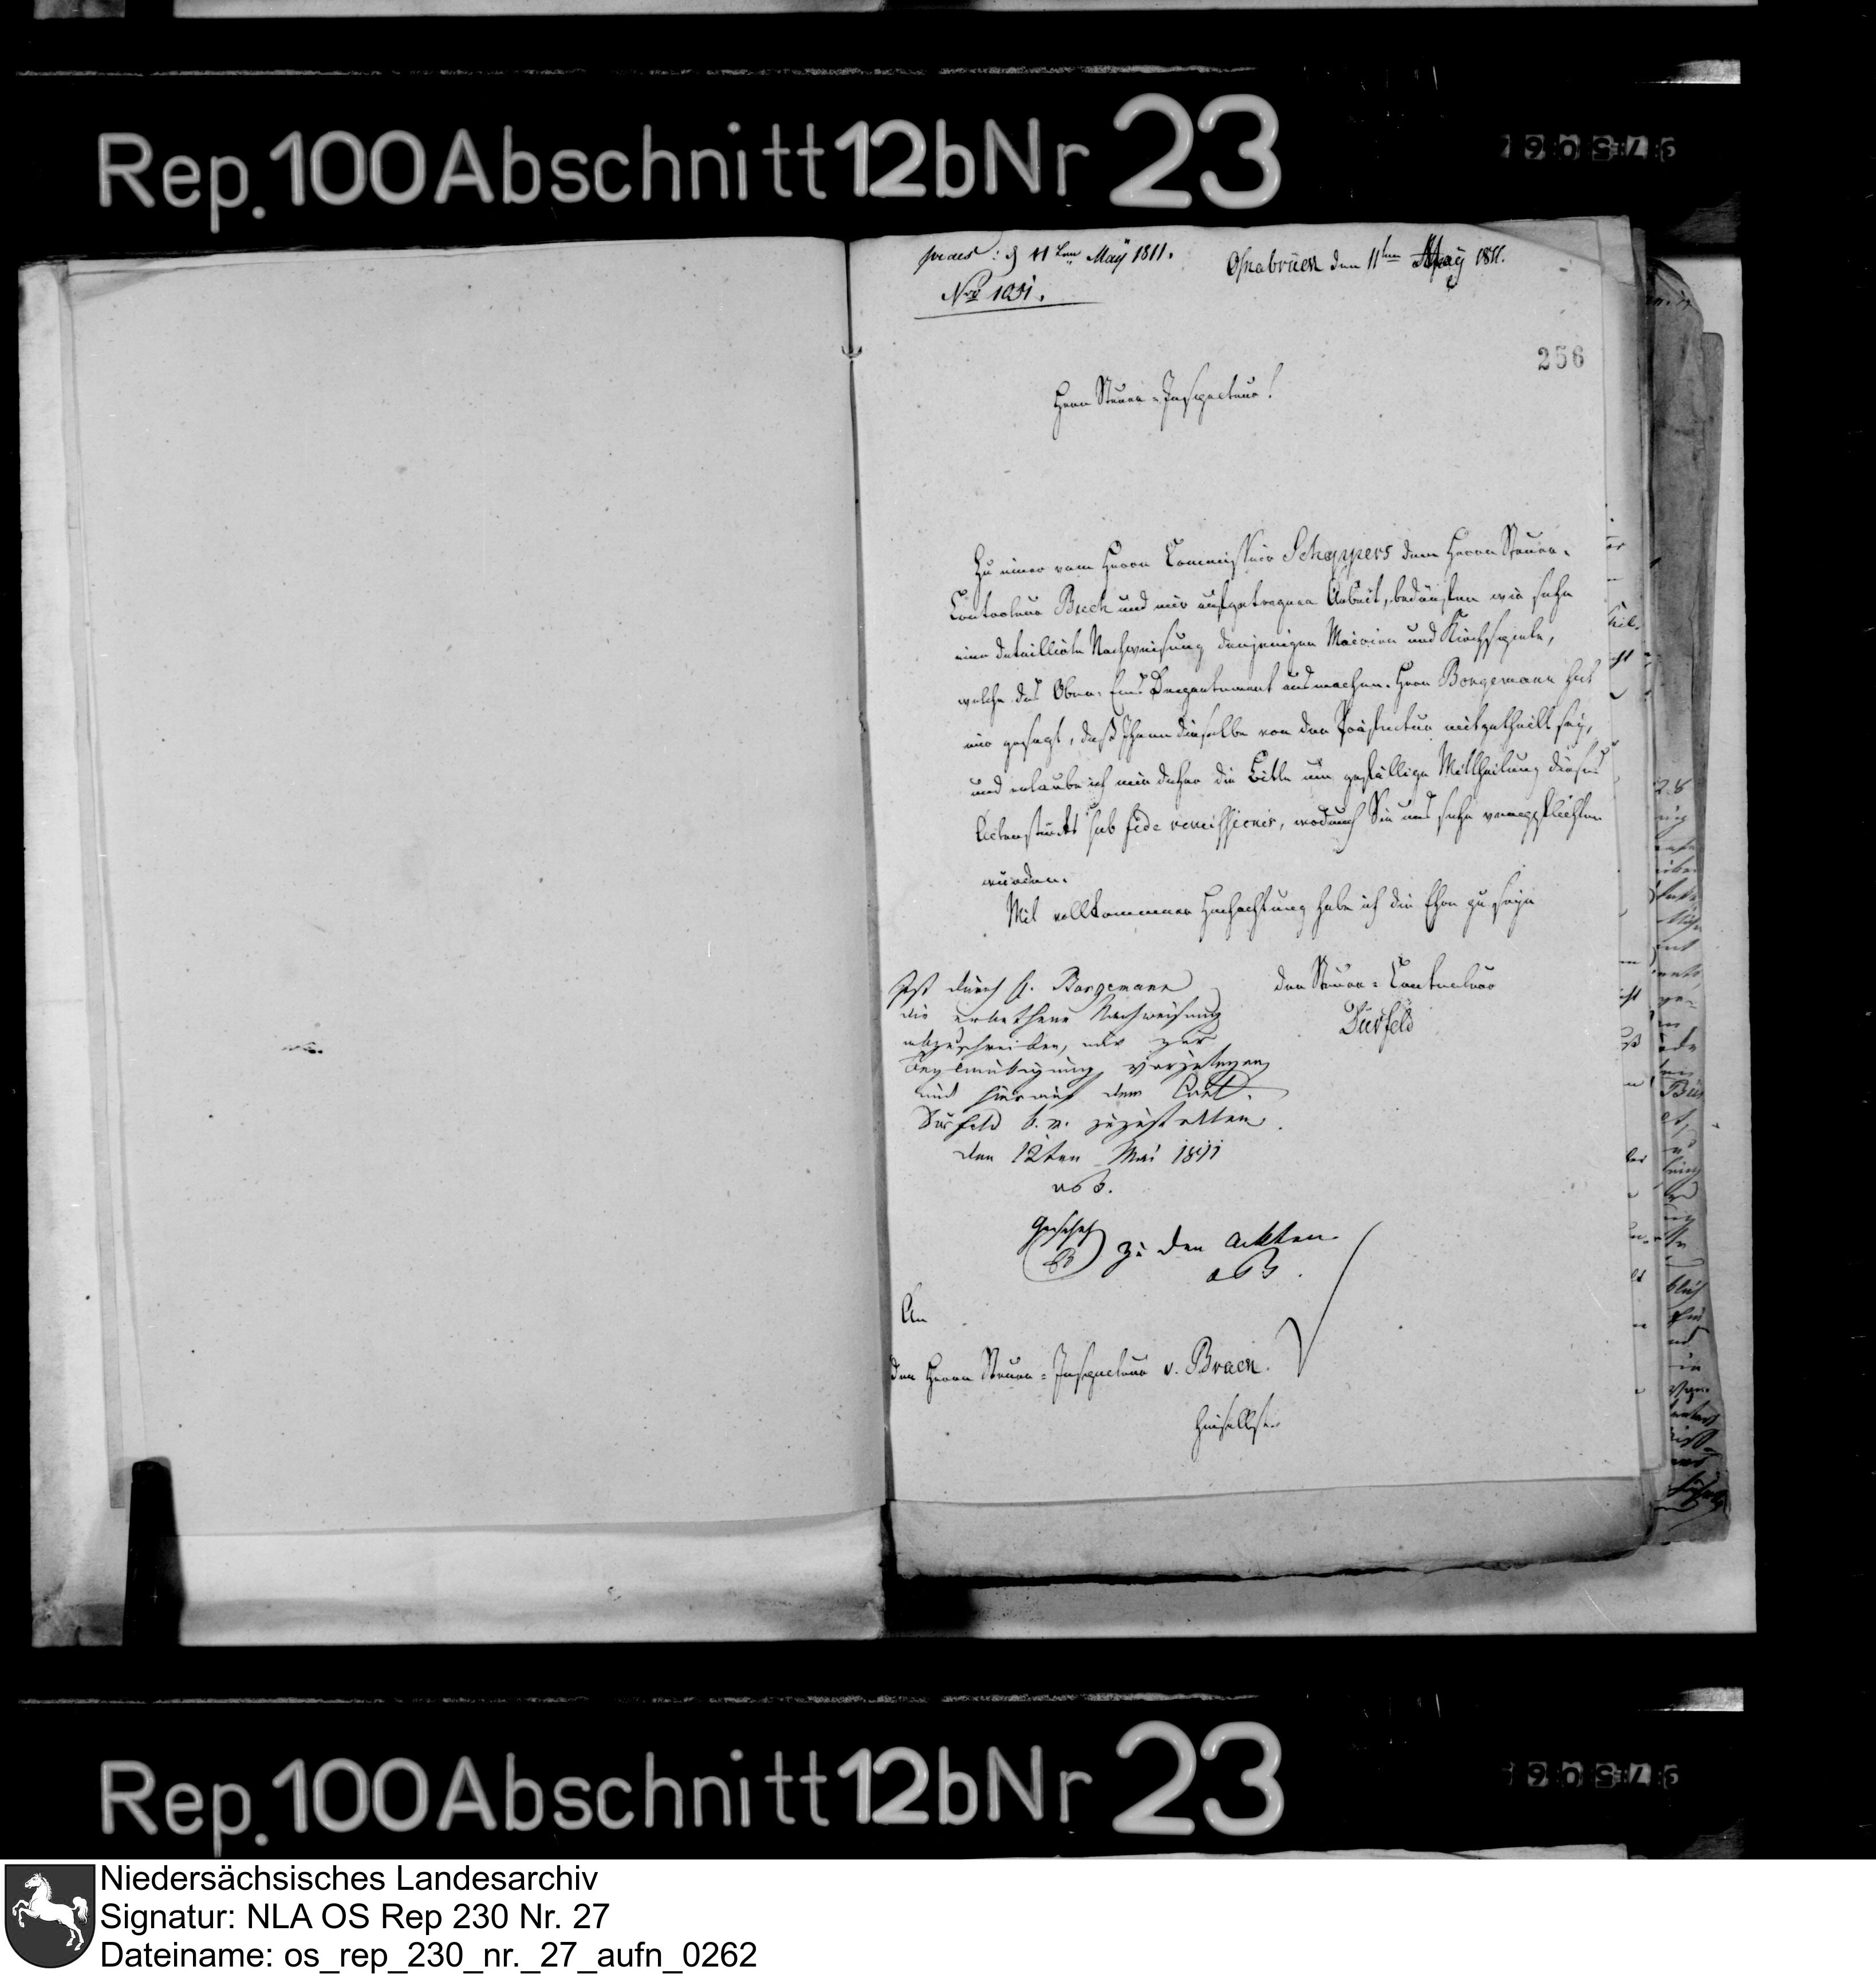 Rep. 100 Abschnitt 12b Nr 23
praes: d 11ten Maÿ 1811.
Osnabrück den 11ten Maÿ 1811.
No 1051.
256
Herr Steuer-Inspecteur!
Zu einer vom Herrn Commissair Scheppers dem Herrn Steuer-
Controleur Buch und mir aufgetragnen Arbeit, bedürften wir sehr
eine detaillirte Nachweisung derjenigen Mairien und Kirchspiele,
welche das Ober-Ems Departement ausmachen. Herr Borgemann hat
mir gesagt, daß Ihnen dieselbe von der Präfectur mitgetheilt sey,
und erlaube ich mir daher die Bitte um gefällige Mittheilung dieses
Actenstücks sub fide remissionis, wodurch Sie uns sehr verpflichten
würden.
Mit vollkommner Hochachtung habe ich die Ehre zu seyn
der Steuer-Controleur
Dürfeld
Ist durch H. Borgemann
die erbethene Nachweisung
abzuschreiben, mir zur
Beglaubigung vorzulegen
und hierauf dem Cont.
Dürfeld b. m. zuzustellen.
den 12ten Mai 1811
vB.
Geschehen
B
zu den Ackten
vB.
An
den Herrn Steuer-Inspecteur v. Braen.
hieselbst
Rep. 100 Abschnitt 12b Nr 23
Niedersächsisches Landesarchiv
Signatur: NLA OS Rep 230 Nr. 27
Dateiname: os_rep_230_nr._27_aufn_0262